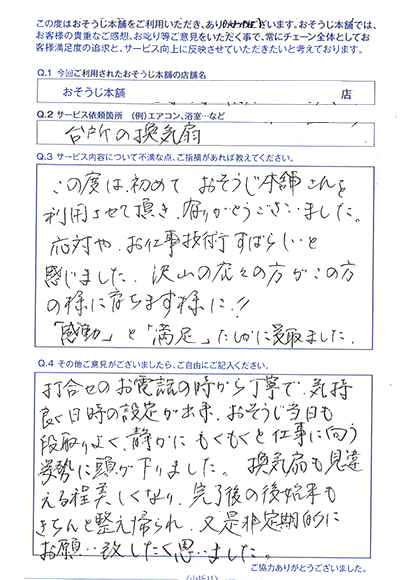 この度はおそうじ本舗をご利用いただき、ありがとうございます。おそうじ本舗では、
お客様の貴重なご感想、お叱り等ご意見をいただく事で、常にチェーン全体としてお
客様満足度の追求と、サービス向上に反映させていただきたいと考えております。
Q.1 今回ご利用されたおそうじ本舗の店舗名
おそうじ本舗 店
Q.2 サービス依頼箇所 (例)エアコン、浴室…など
台所の換気扇
Q.3 サービス内容について不満な点、ご指摘があれば教えてください。
この度は初めて おそうじ本舗さんを
利用させて頂き、ありがとうございました。
応対や、お仕事技術すばらしいと
感じました。沢山の店々の方がこの方
の様に育ちます様に!!
「感動」と「満足」たしかに受取ました。
Q.4 その他ご意見がございましたら、ご自由にご記入ください。
打合せのお電話の時から丁寧で、気持
良く日時の設定が出来、おそうじ当日も
段取りよく、静かにもくもくと仕事に向う
姿勢に頭が下りました。換気扇も見違
える程美しくなり、完了後の後始末も
きちんと整え帰られ、又是非定期的に
お願い致したく思いました。
ご協力ありがとうございました。